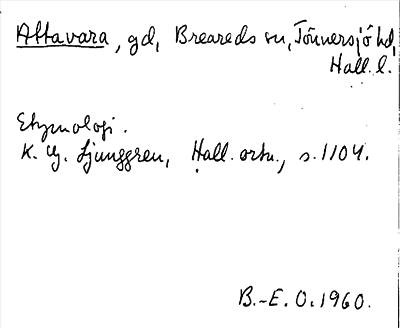 Altavara, gd, Breareds sn, Tönnersjö hd,
Hall. l.
Etymologi.
K. G. Ljunggren, Hall. ortn., s. 1104.
B.-E. O. 1960.